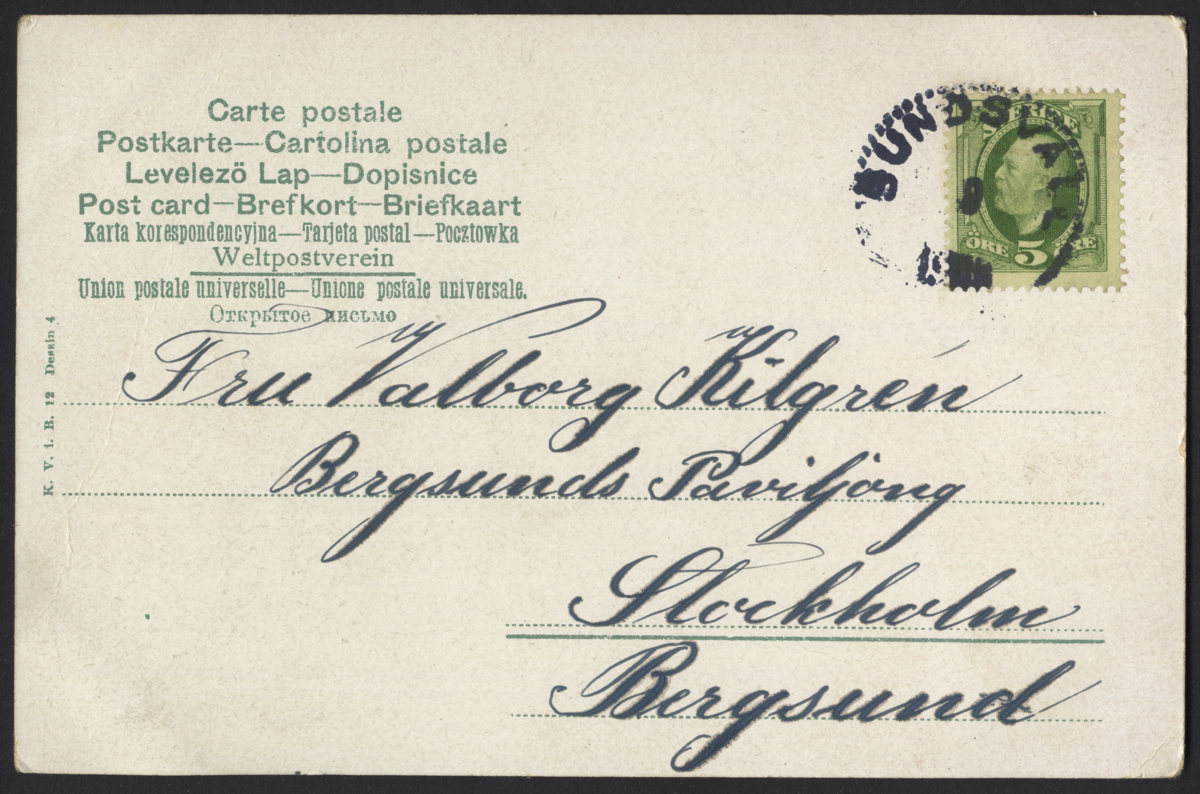 Carte postale
Postkarte—Cartolina postale
Levelező Lap—Dopisnice
Post card—Brefkort—Briefkaart
Karta korespondencyjna—Tarjeta postal—Pocztowka
Weltpostverein
Union postale universelle—Unione postale universale.
Открытое письмо
K. V. i. B. 12 Dessin 4
SVERIGE
ÖRE 5 ÖRE
Fru Valborg Kilgrén
Bergsunds Paviljong
Stockholm
Bergsund